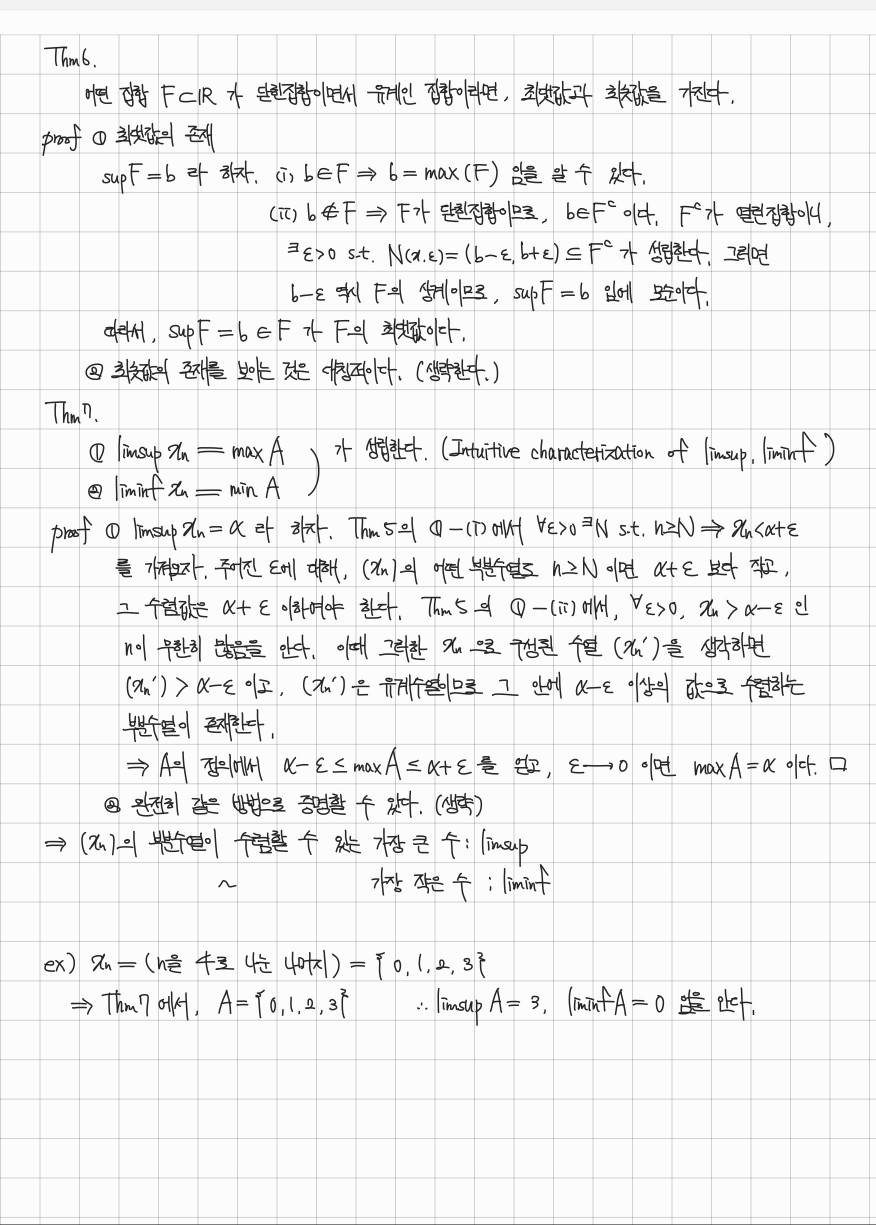 Thm 6.
어떤 집합 F⊂ℝ 가 닫힌집합이면서 유계인 집합이라면, 최댓값과 최솟값을 가진다.
proof ① 최댓값의 존재
supF = b 라 하자. (i) b∈F ⇒ b = max(F) 임을 알 수 있다.
(ii) b∉F ⇒ F가 닫힌집합이므로, b∈Fᶜ 이다. Fᶜ가 열린집합이니,
∃ε>0 s.t. N(x.ε)=(b-ε, b+ε) ⊆ Fᶜ 가 성립한다. 그러면
b-ε 역시 F의 상계이므로, supF = b 임에 모순이다.
따라서, supF = b ∈ F 가 F의 최댓값이다.
② 최솟값의 존재를 보이는 것은 대칭적이다. (생략한다.)
Thm 7.
① limsup xₙ = max A
② liminf xₙ = min A
가 성립한다. (Intuitive characterization of limsup, liminf)
proof ① limsup xₙ = α 라 하자. Thm 5의 ①-(i)에서 ∀ε>0 ∃N s.t. n≥N ⇒ xₙ<α+ε
를 가져오자. 주어진 ε에 대해, (xₙ)의 어떤 부분수열도 n≥N 이면 α+ε 보다 작고,
그 수렴값은 α+ε 이하여야 한다. Thm 5의 ①-(ii)에서, ∀ε>0, xₙ > α-ε 인
n이 무한히 많음을 안다. 이때 그러한 xₙ으로 구성된 수열 (xₙ')을 생각하면
(xₙ') > α-ε 이고, (xₙ')은 유계수열이므로 그 안에 α-ε 이상의 값으로 수렴하는
부분수열이 존재한다.
⇒ A의 정의에서 α-ε ≤ max A ≤ α+ε 를 얻고, ε→0 이면 max A = α 이다. □
② 완전히 같은 방법으로 증명할 수 있다. (생략)
⇒ (xₙ)의 부분수열이 수렴할 수 있는 가장 큰 수 : limsup
~ 가장 작은 수 : liminf
ex) xₙ = (n을 4로 나눈 나머지) = {0, 1, 2, 3}
⇒ Thm 7 에서, A = {0, 1, 2, 3} ∴ limsup A = 3, liminf A = 0 임을 안다.